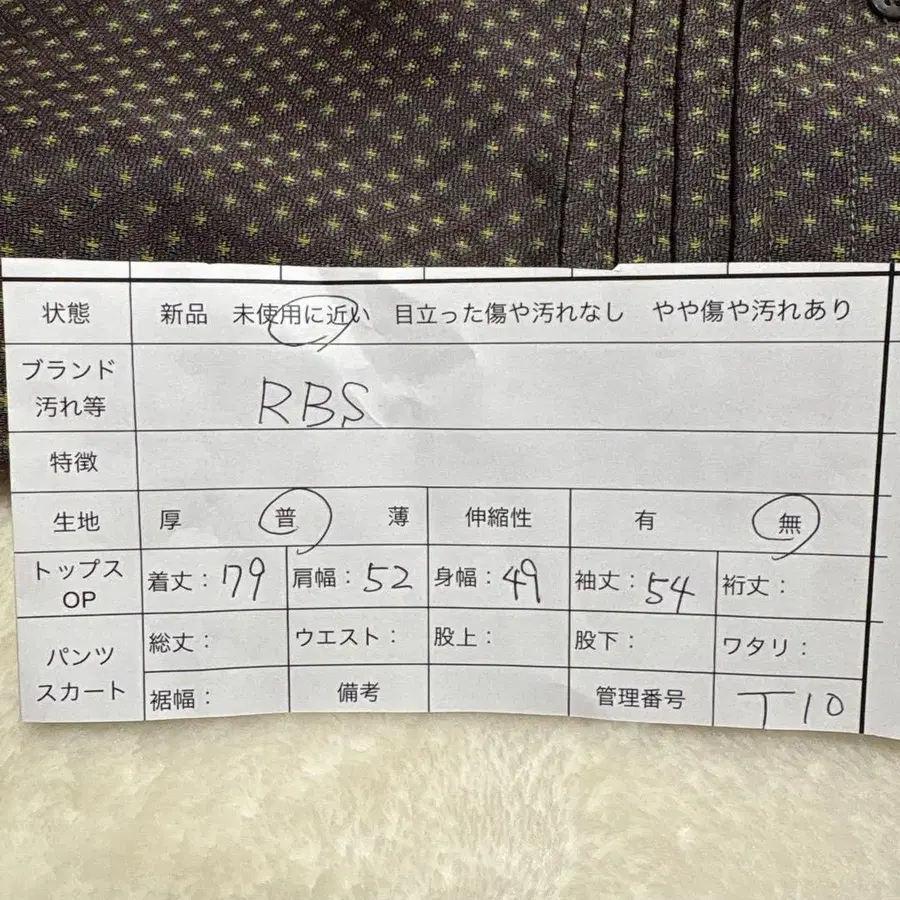 状態 新品 未使用に近い 目立った傷や汚れなし やや傷や汚れあり
ブランド
汚れ等
RBS
特徴
生地 厚 普 薄 伸縮性 有 無
トップス
OP
着丈：79 肩幅：52 身幅：49 袖丈：54 裄丈：
パンツ
スカート
総丈： ウエスト： 股上： 股下： ワタリ：
裾幅： 備考 管理番号 T10